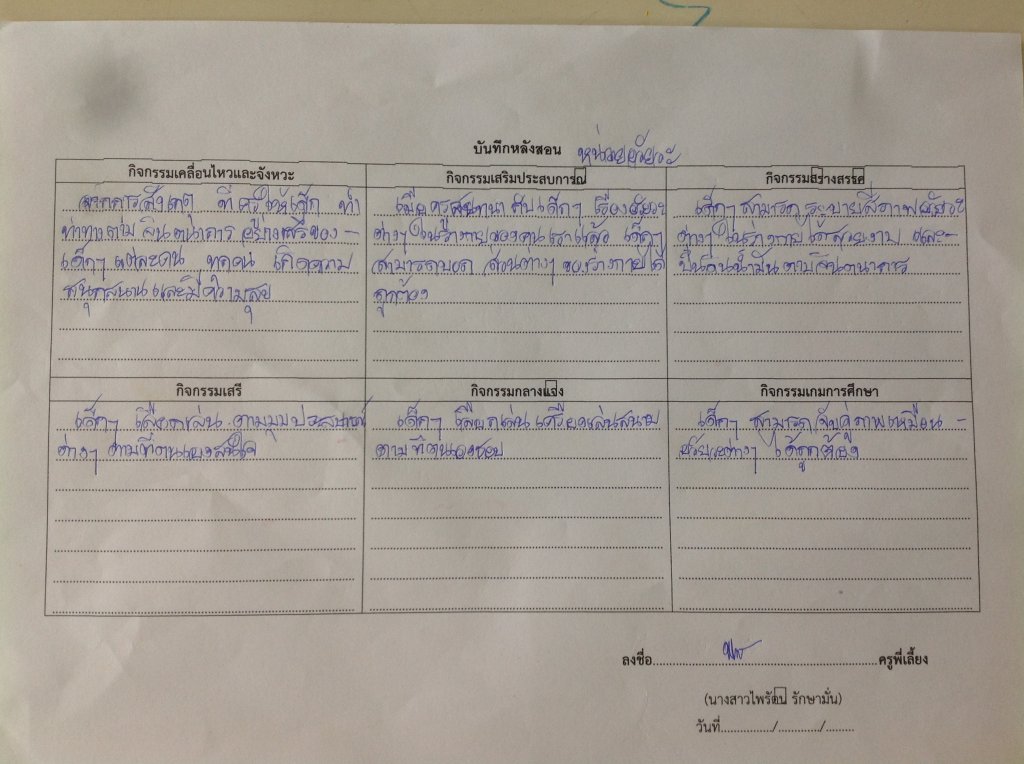 บันทึกหลังสอน หน่วยอวัยวะ
กิจกรรมเคลื่อนไหวและจังหวะ
จากการสังเกต ที่ครูให้เด็ก ทำ
ท่าทางตามจินตนาการ อย่างเสรีของ -
เด็กๆ แต่ละคน ทุกคน เกิดความ
สนุกสนาน และมีความสุข
กิจกรรมเสริมประสบการณ์
เมื่อครูสนทนา กับเด็กๆ เรื่องอวัยวะ
ต่างๆ ในร่างกายของคนเราแล้ว เด็กๆ
สามารถบอก ส่วนต่างๆ ของร่างกายได้
ถูกต้อง
กิจกรรมสร้างสรรค์
เด็กๆ สามารถ ระบายสีภาพอวัยวะ
ต่างๆ ในร่างกาย ได้สวยงาม และ-
ปั้นดินน้ำมัน ตามจินตนาการ
กิจกรรมเสรี
เด็กๆ เลือกเล่น ตามมุมประสบการณ์
ต่างๆ ตามที่ตนเองสนใจ
กิจกรรมกลางแจ้ง
เด็กๆ เลือกเล่น เครื่องเล่นสนาม
ตามที่ตนเองชอบ
กิจกรรมเกมการศึกษา
เด็กๆ สามารถ จับคู่ภาพเหมือน -
อวัยวะต่างๆ ได้ถูกต้อง
ลงชื่อ....................ครูพี่เลี้ยง
(นางสาวไพรัตน์ รักษามั่น)
วันที่.............../............/.........